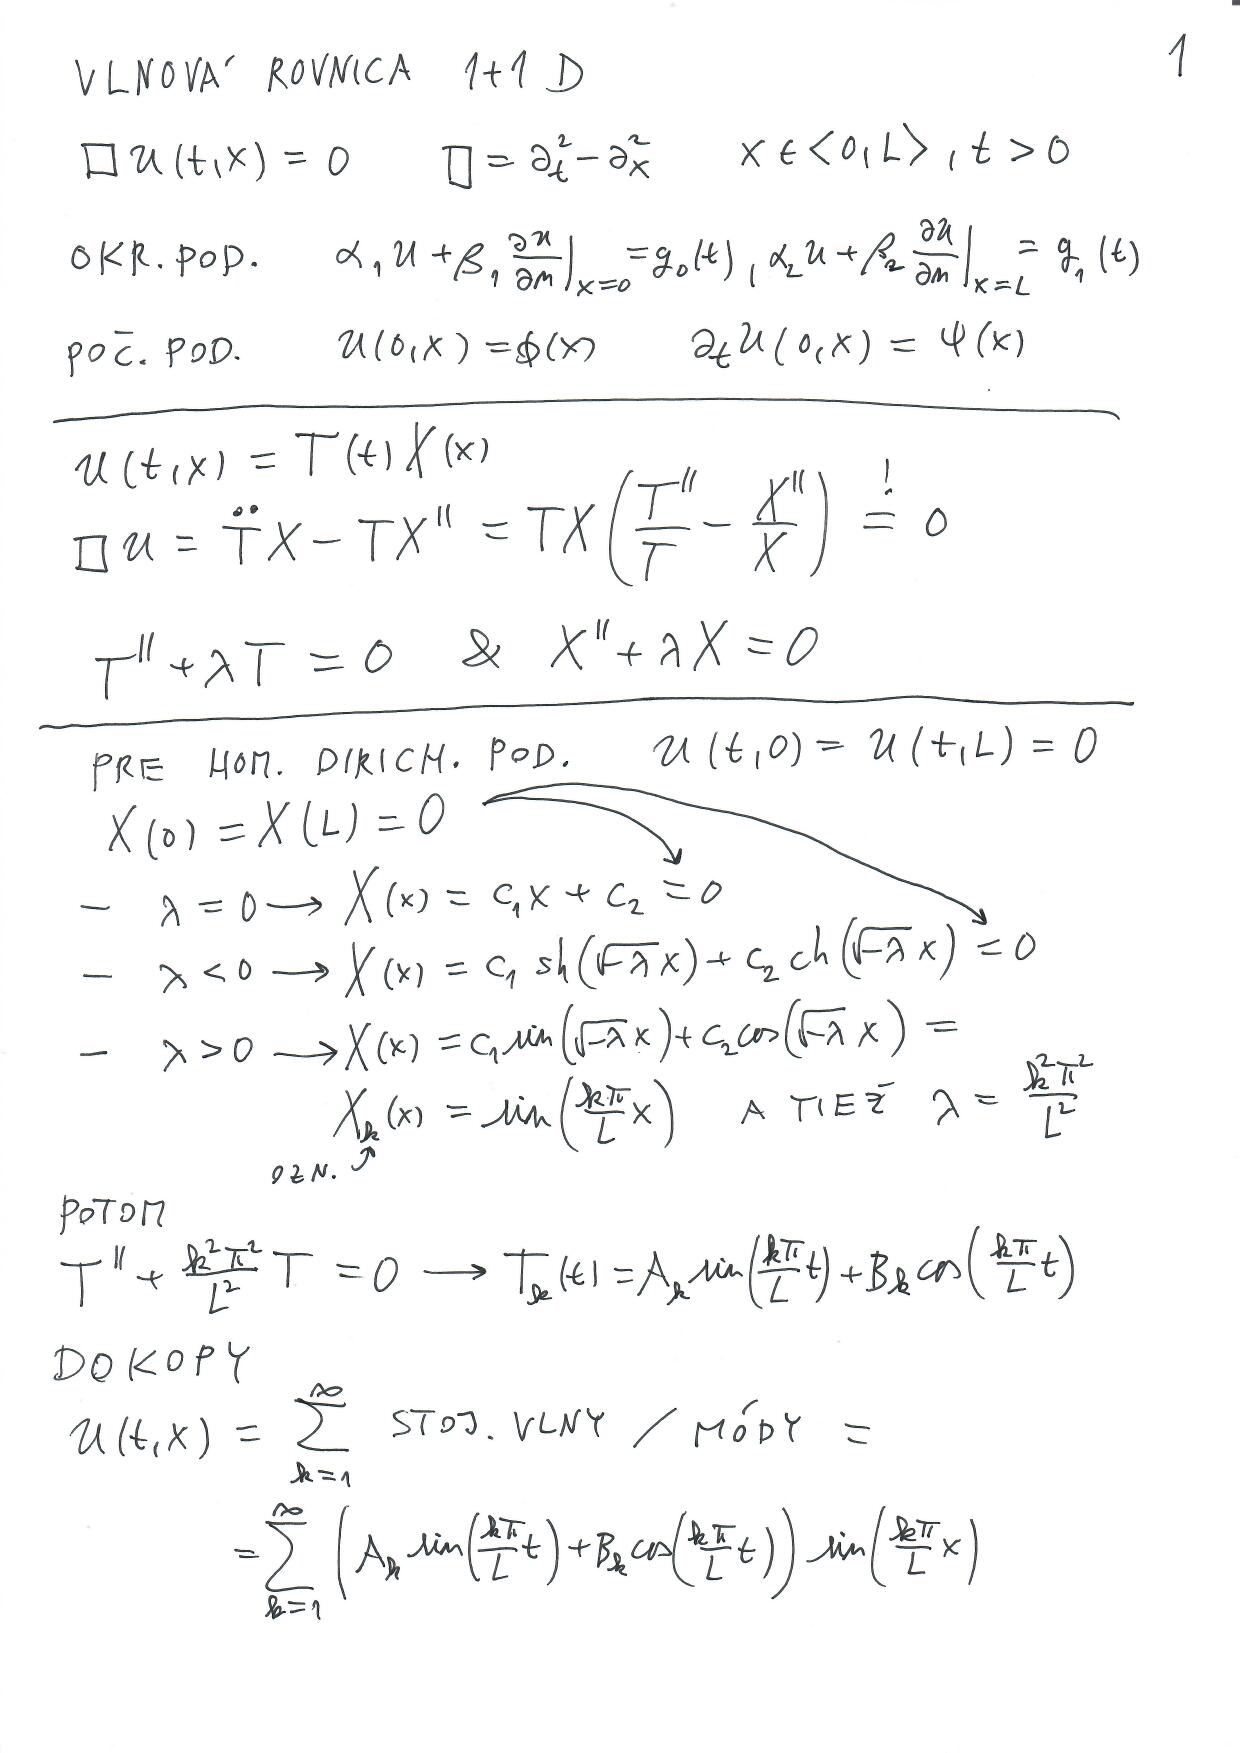 1
VLNOVÁ ROVNICA 1+1 D
□u(t,x) = 0   □ = ∂_t² − ∂_x²   x ∈ <0,L>, t > 0
OKR. POD.   α₁u + β₁ ∂u/∂n |_{x=0} = g₀(t), α₂u + β₂ ∂u/∂n |_{x=L} = g₁(t)
POČ. POD.   u(0,x) = ϕ(x)   ∂_t u(0,x) = ψ(x)
u(t,x) = T(t)X(x)
□u = T̈X − TX'' = TX(T''/T − X''/X) =! 0
T'' + λT = 0 & X'' + λX = 0
PRE HOM. DIRICH. POD.   u(t,0) = u(t,L) = 0
X(0) = X(L) = 0
− λ = 0 → X(x) = c₁x + c₂ = 0
− λ < 0 → X(x) = c₁ sh(√−λ x) + c₂ ch(√−λ x) = 0
− λ > 0 → X(x) = c₁ sin(√−λ x) + c₂ cos(√−λ x) =
X_k(x) = sin(kπ/L x)   A TIEŽ λ = k²π²/L²
OZN.
POTOM
T'' + k²π²/L² T = 0 → T_k(t) = A_k sin(kπ/L t) + B_k cos(kπ/L t)
DOKOPY
u(t,x) = ∑_{k=1}^∞ STOJ. VLNY / MÓDY =
= ∑_{k=1}^∞ (A_k sin(kπ/L t) + B_k cos(kπ/L t)) sin(kπ/L x)